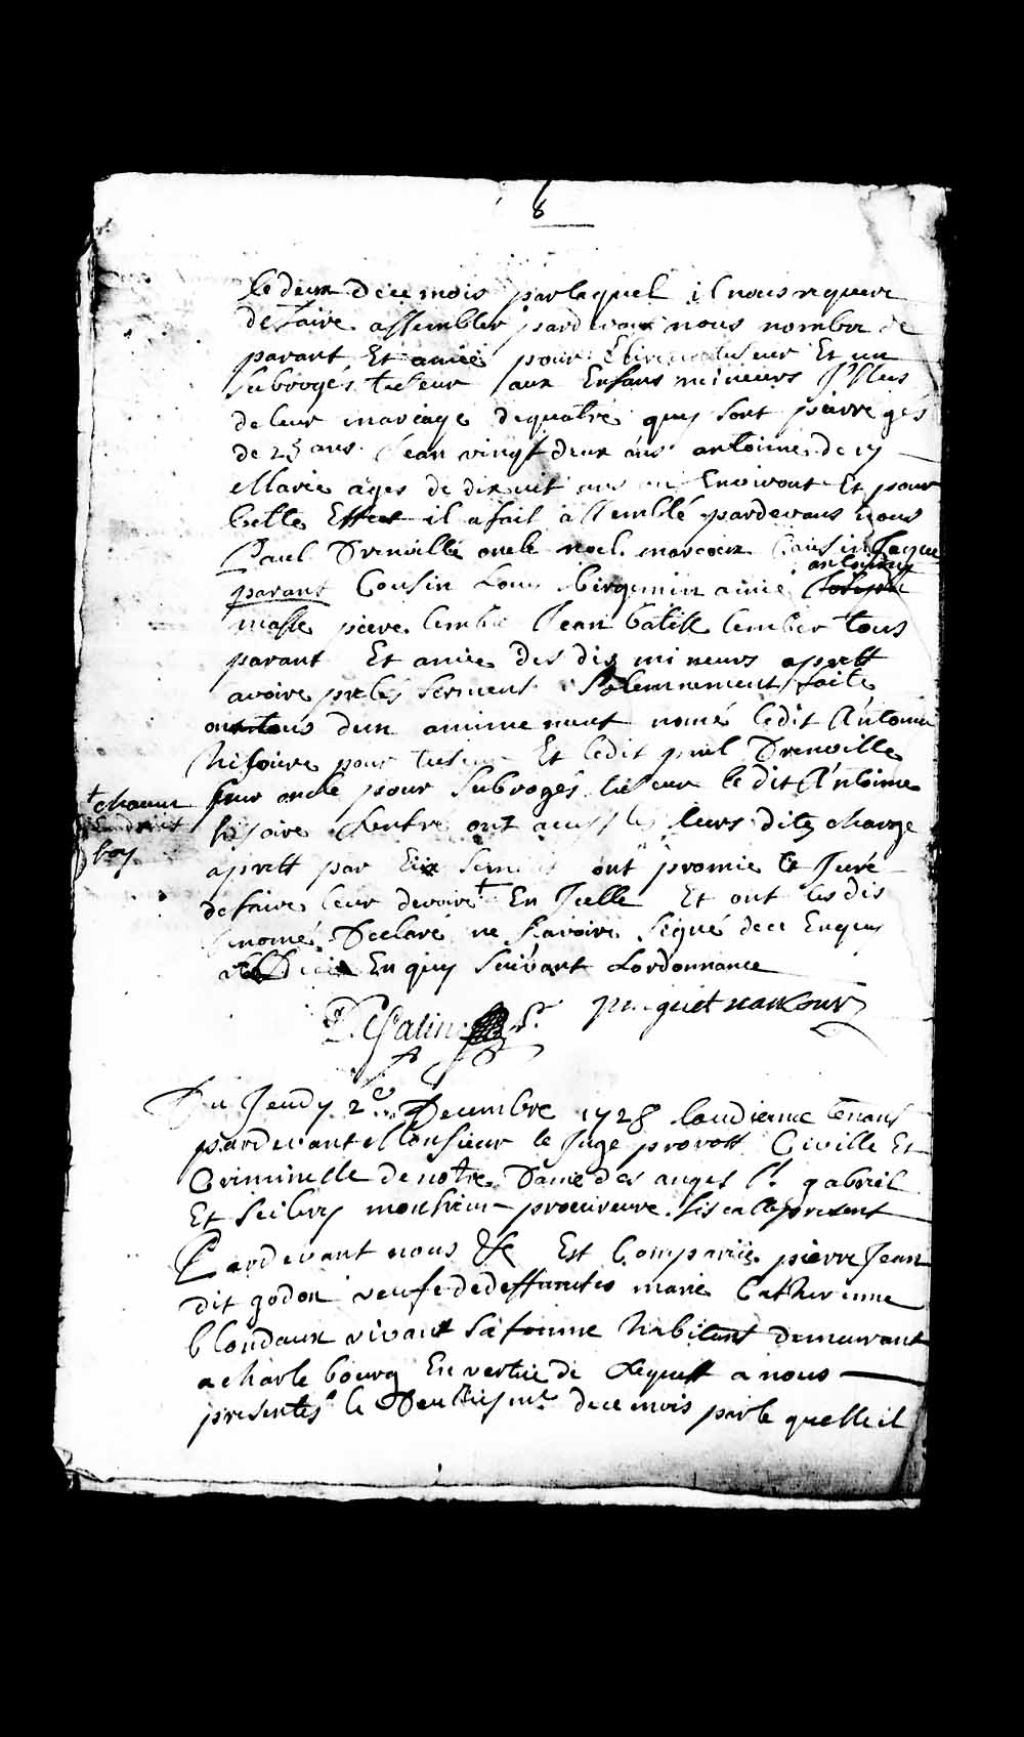 8
le deux dece mois par lequel il nous requere
de faire assembler pardevant nous nombre de
parant Et amies pour Elire tuteur Et un
subrogés tuteur aux Enfans mineurs
de leur mariage de quatre quy sont pierre agés
de 25 ans Jean vingt deux ans antoinne de 19
Marie ages de dix uit ans ou Environt Et pour
Cette Effect il a fait assemblé pardevans nous
Paul Drenville oncle noel marcoux Cousin Jaque
antoinne
parant Cousin Louis birgemin amie
masse piere lembler Jean batiste lember tous
parant Et amies des dis mineurs aprest
avoire pretés serment solemnement faite
ont tous dun animement nomé ledit Antoine
hisoire pour tuteur Et ledit paul Drenville
leur oncle pour subrogés tuteur le dit Antoine
hisoire Lentre ont accepté leurs dite charge
aprest par Eux serment ont promie Et Juré
de faire leur devoire † En Jcelle Et ont les dis
nomé Declaré ne scavoire signé dece Enquis
Enquy suivant Lordonnance
† chacun
Endroit
soy
paquet nancour
Du Jeudy 2e Decembre 1728 laudiance tenant
pardevant Monsieur le Juge provost Civille Et
Criminelle de notre Dame des anges st gabriel
Et seilery monsieur procureure fiscalle present
Pardevant nous &c Est Comparüe pierre Jean
dit godon veufe de deffuncte marie Catherinne
blondaux vivant sa femme habitant demeurant
a charle bourg En vertue de Request a nous
presentés le Deuxiesme dece mois par le quelle il